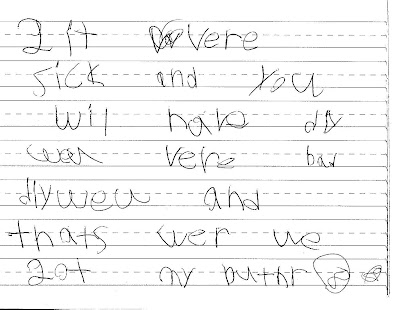 2 it vere
sick and you
wil have diy
wou vere bad
diywou and
thats wer we
got my buthr